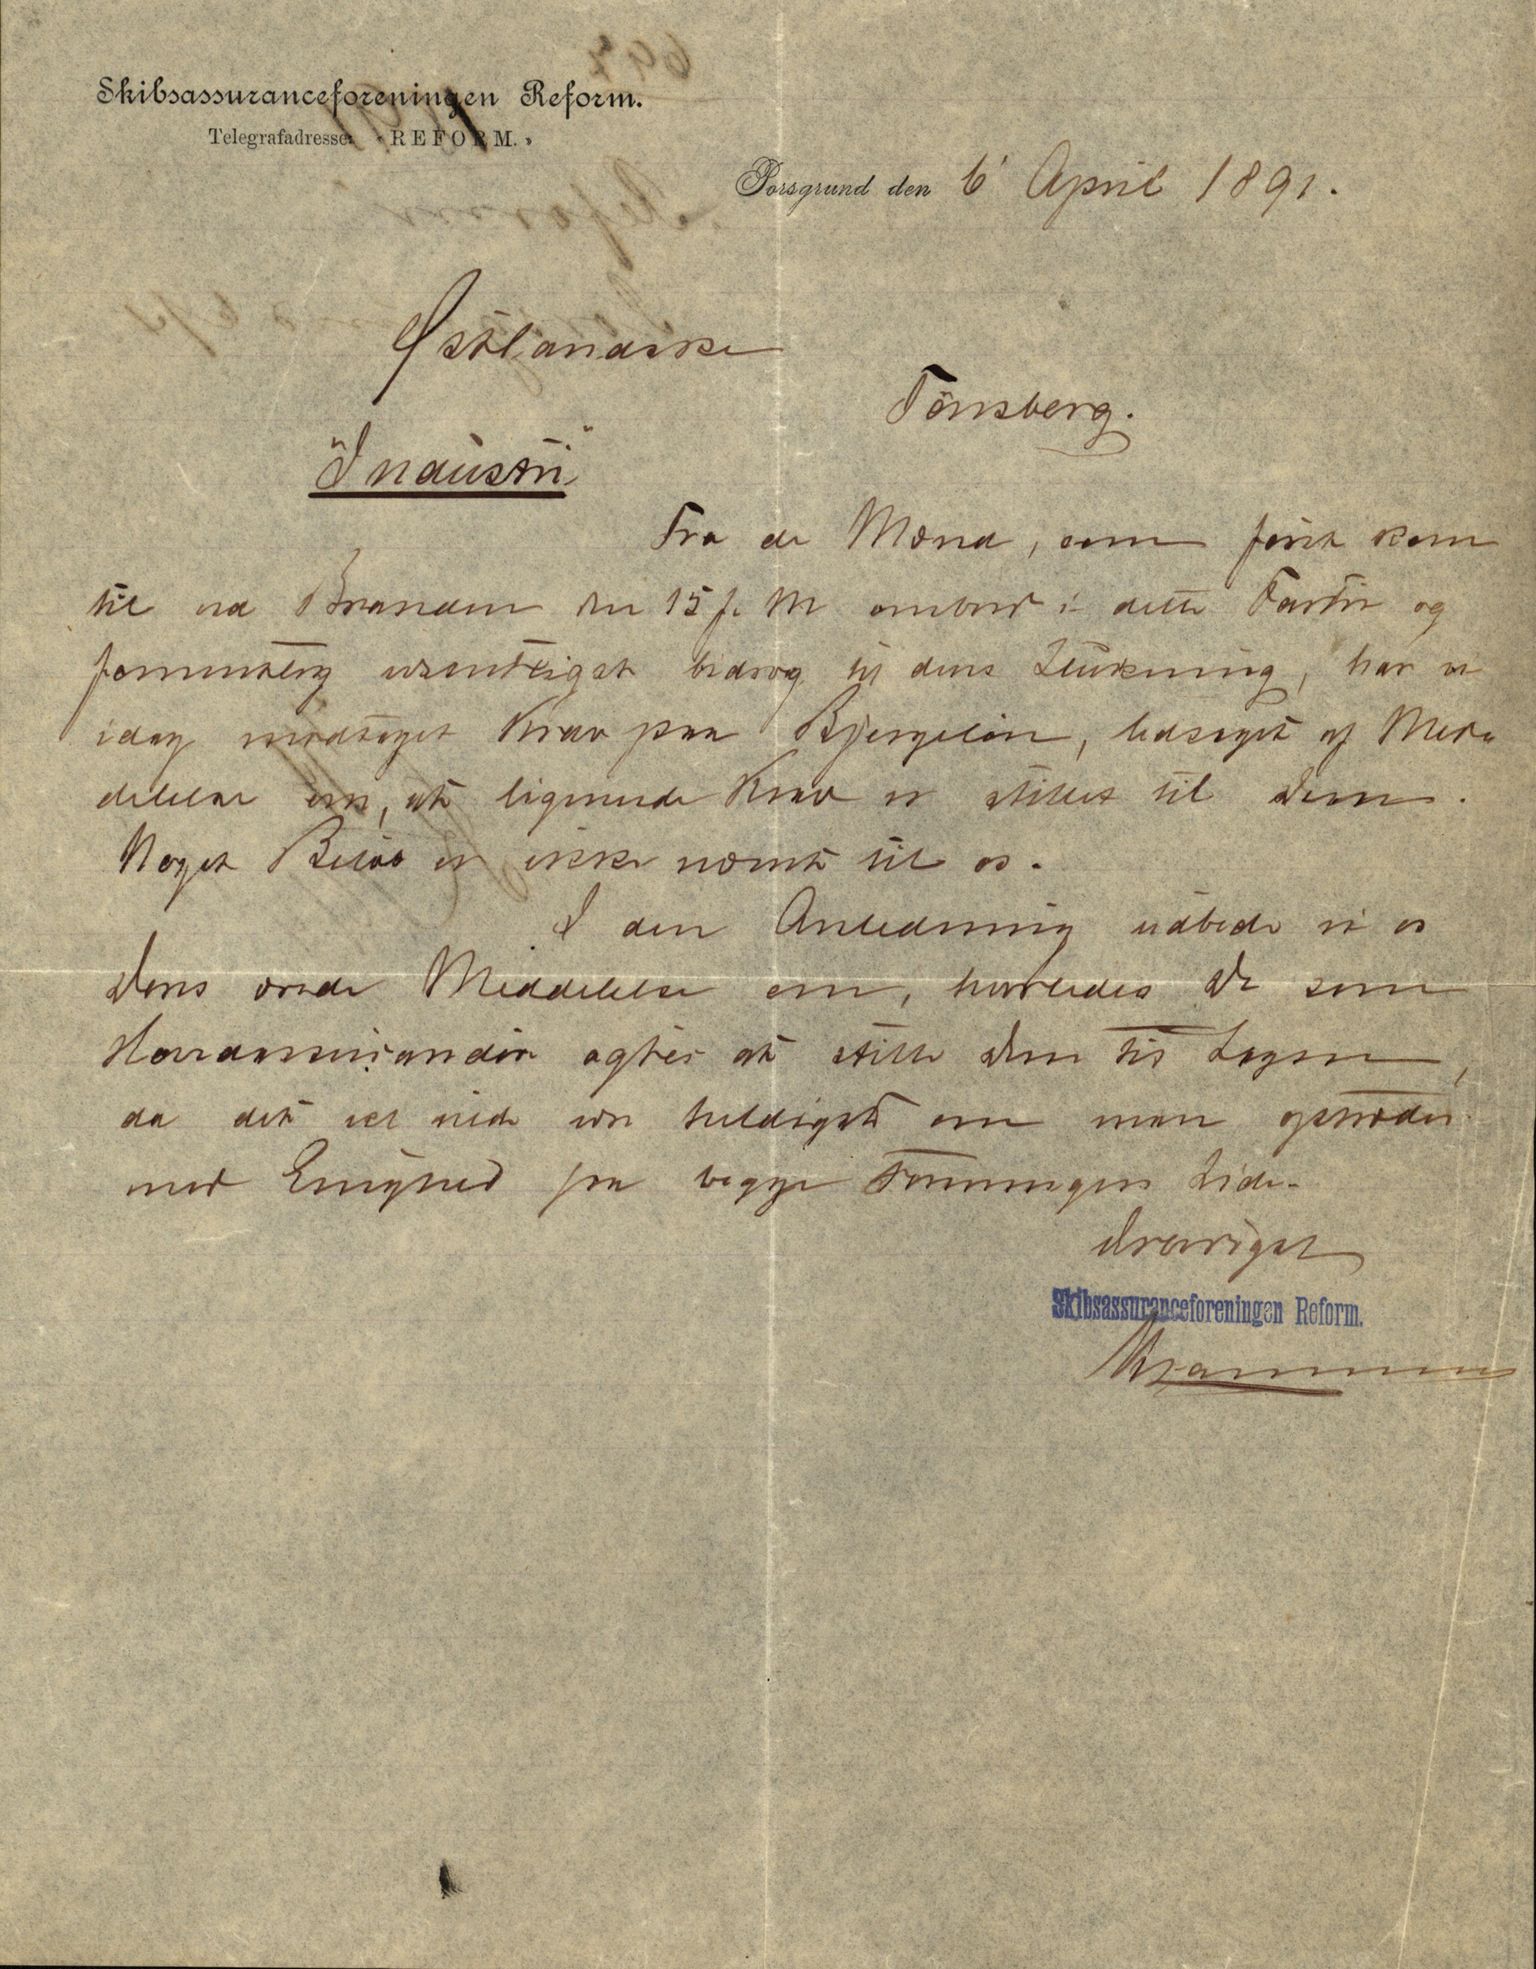 Skibsassuranceforeningen Reform.
Telegrafadresse: «REFORM.»
Porsgrund den 6' April 1891.
Østlandske
Tønsberg.
"Industri"
Fra de Mænd, som først kom
til ved Branden den 15 f. M ombord i dette Fartøi og
formentlig væsentligst bidrog til dens Slukning, har vi
idag modtaget Krav paa Bjergeløn, ledsaget af Med-
delelse om, at lignende Krav er stillet til Dem.
Noget Beløb er ikke nævnt til os.
I den Anledning udbede vi os
Deres ærede Meddelelse om, hvorledes De som
agter at stille Dem til Sagen,
da det vel vilde være heldigst om man optræder
med Enighed fra begge Foreningers Side.
Skibsassuranceforeningen Reform.